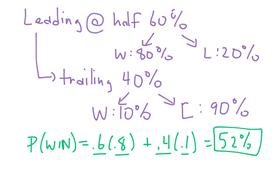 Leading @ half 60%
W: 80% L: 20%
trailing 40%
W: 10% L: 90%
P(WIN) = .6(.8) + .4(.1) = 52%